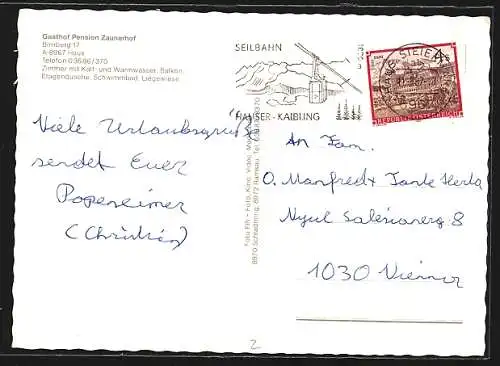 Gasthof Pension Zaunerhof
Birnberg 17
A-8967 Haus
Telefon 03686/370
Zimmer mit Kalt- und Warmwasser, Balkon,
Etagendusche, Schwimmbad, Liegewiese
SEILBAHN
HAUSER-KAIBLING
REPUBLIK ÖSTERREICH
Viele Urlaubsgrüße
sendet Euer
(Christian)
Foto Fifi - Foto, Kino, Video,
8970 Schladming, 8972 Ramsau, Tel.
An Fam.
O. Manfred + Tante Herta
Salesianerg 8
1030 Vienna
2